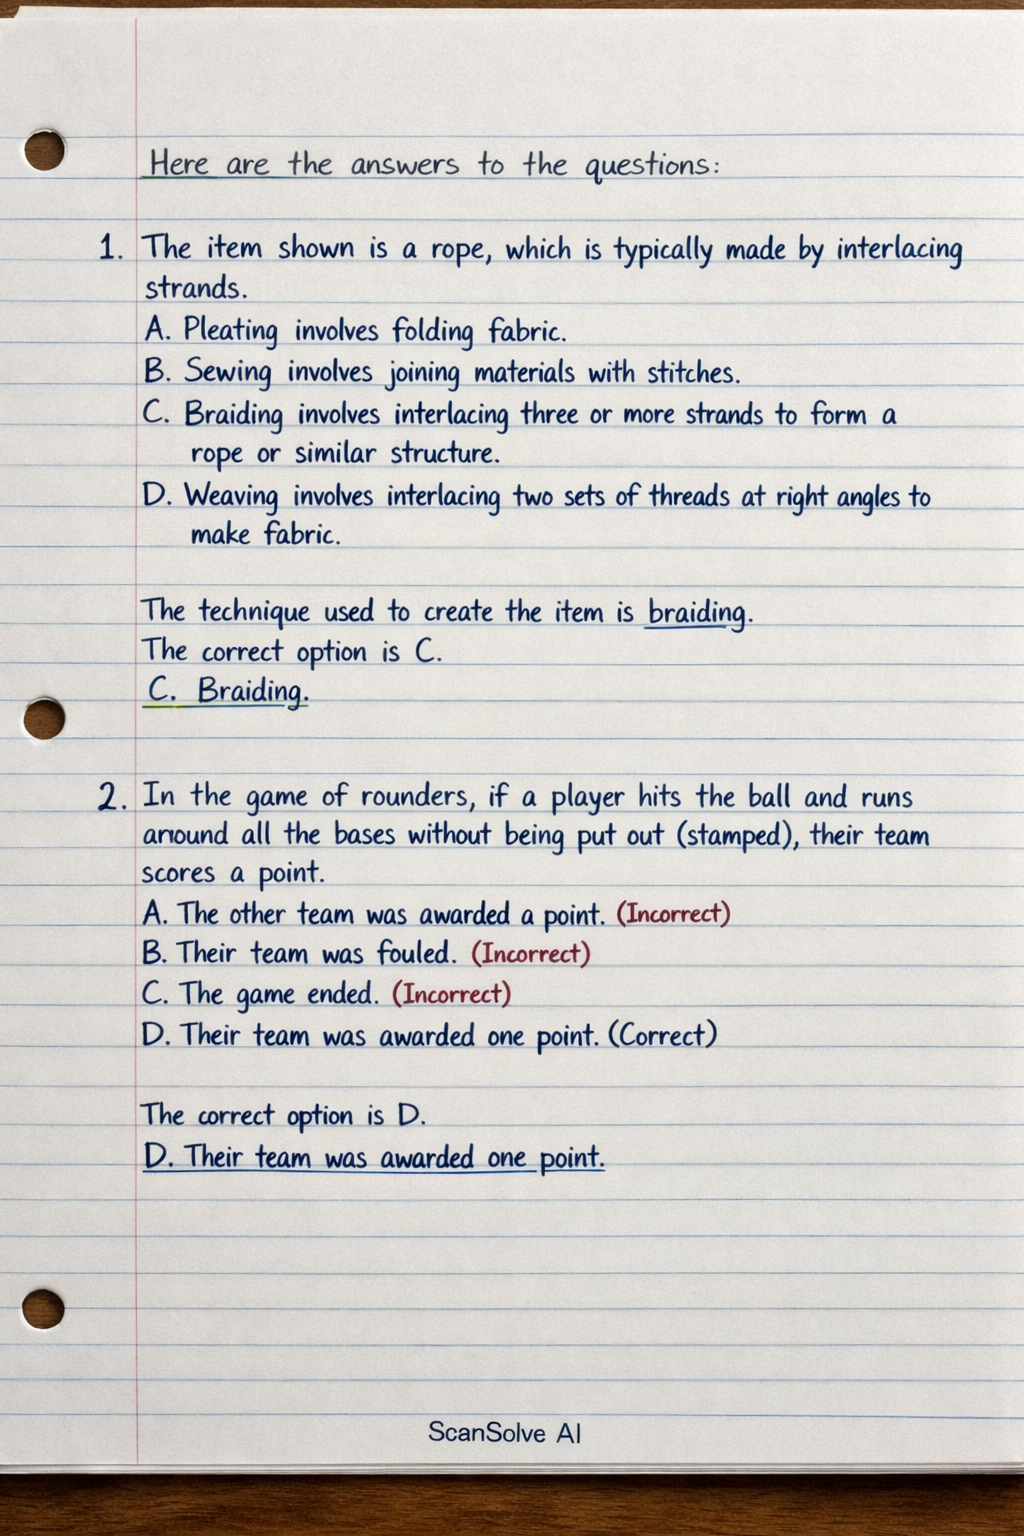 Here are the answers to the questions:
1. The item shown is a rope, which is typically made by interlacing
strands.
A. Pleating involves folding fabric.
B. Sewing involves joining materials with stitches.
C. Braiding involves interlacing three or more strands to form a
rope or similar structure.
D. Weaving involves interlacing two sets of threads at right angles to
make fabric.
The technique used to create the item is braiding.
The correct option is C.
C. Braiding.
2. In the game of rounders, if a player hits the ball and runs
around all the bases without being put out (stamped), their team
scores a point.
A. The other team was awarded a point. (Incorrect)
B. Their team was fouled. (Incorrect)
C. The game ended. (Incorrect)
D. Their team was awarded one point. (Correct)
The correct option is D.
D. Their team was awarded one point.
ScanSolve AI